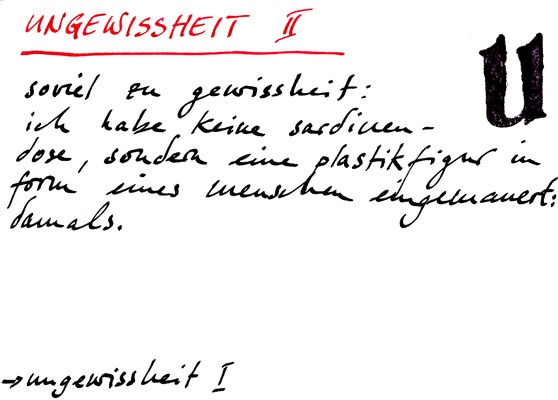 UNGEWISSHEIT II
u
soviel zu gewissheit:
ich habe keine sardinen-
dose, sondern eine plastikfigur in
form eines menschen eingemauert:
damals.
→ungewissheit I